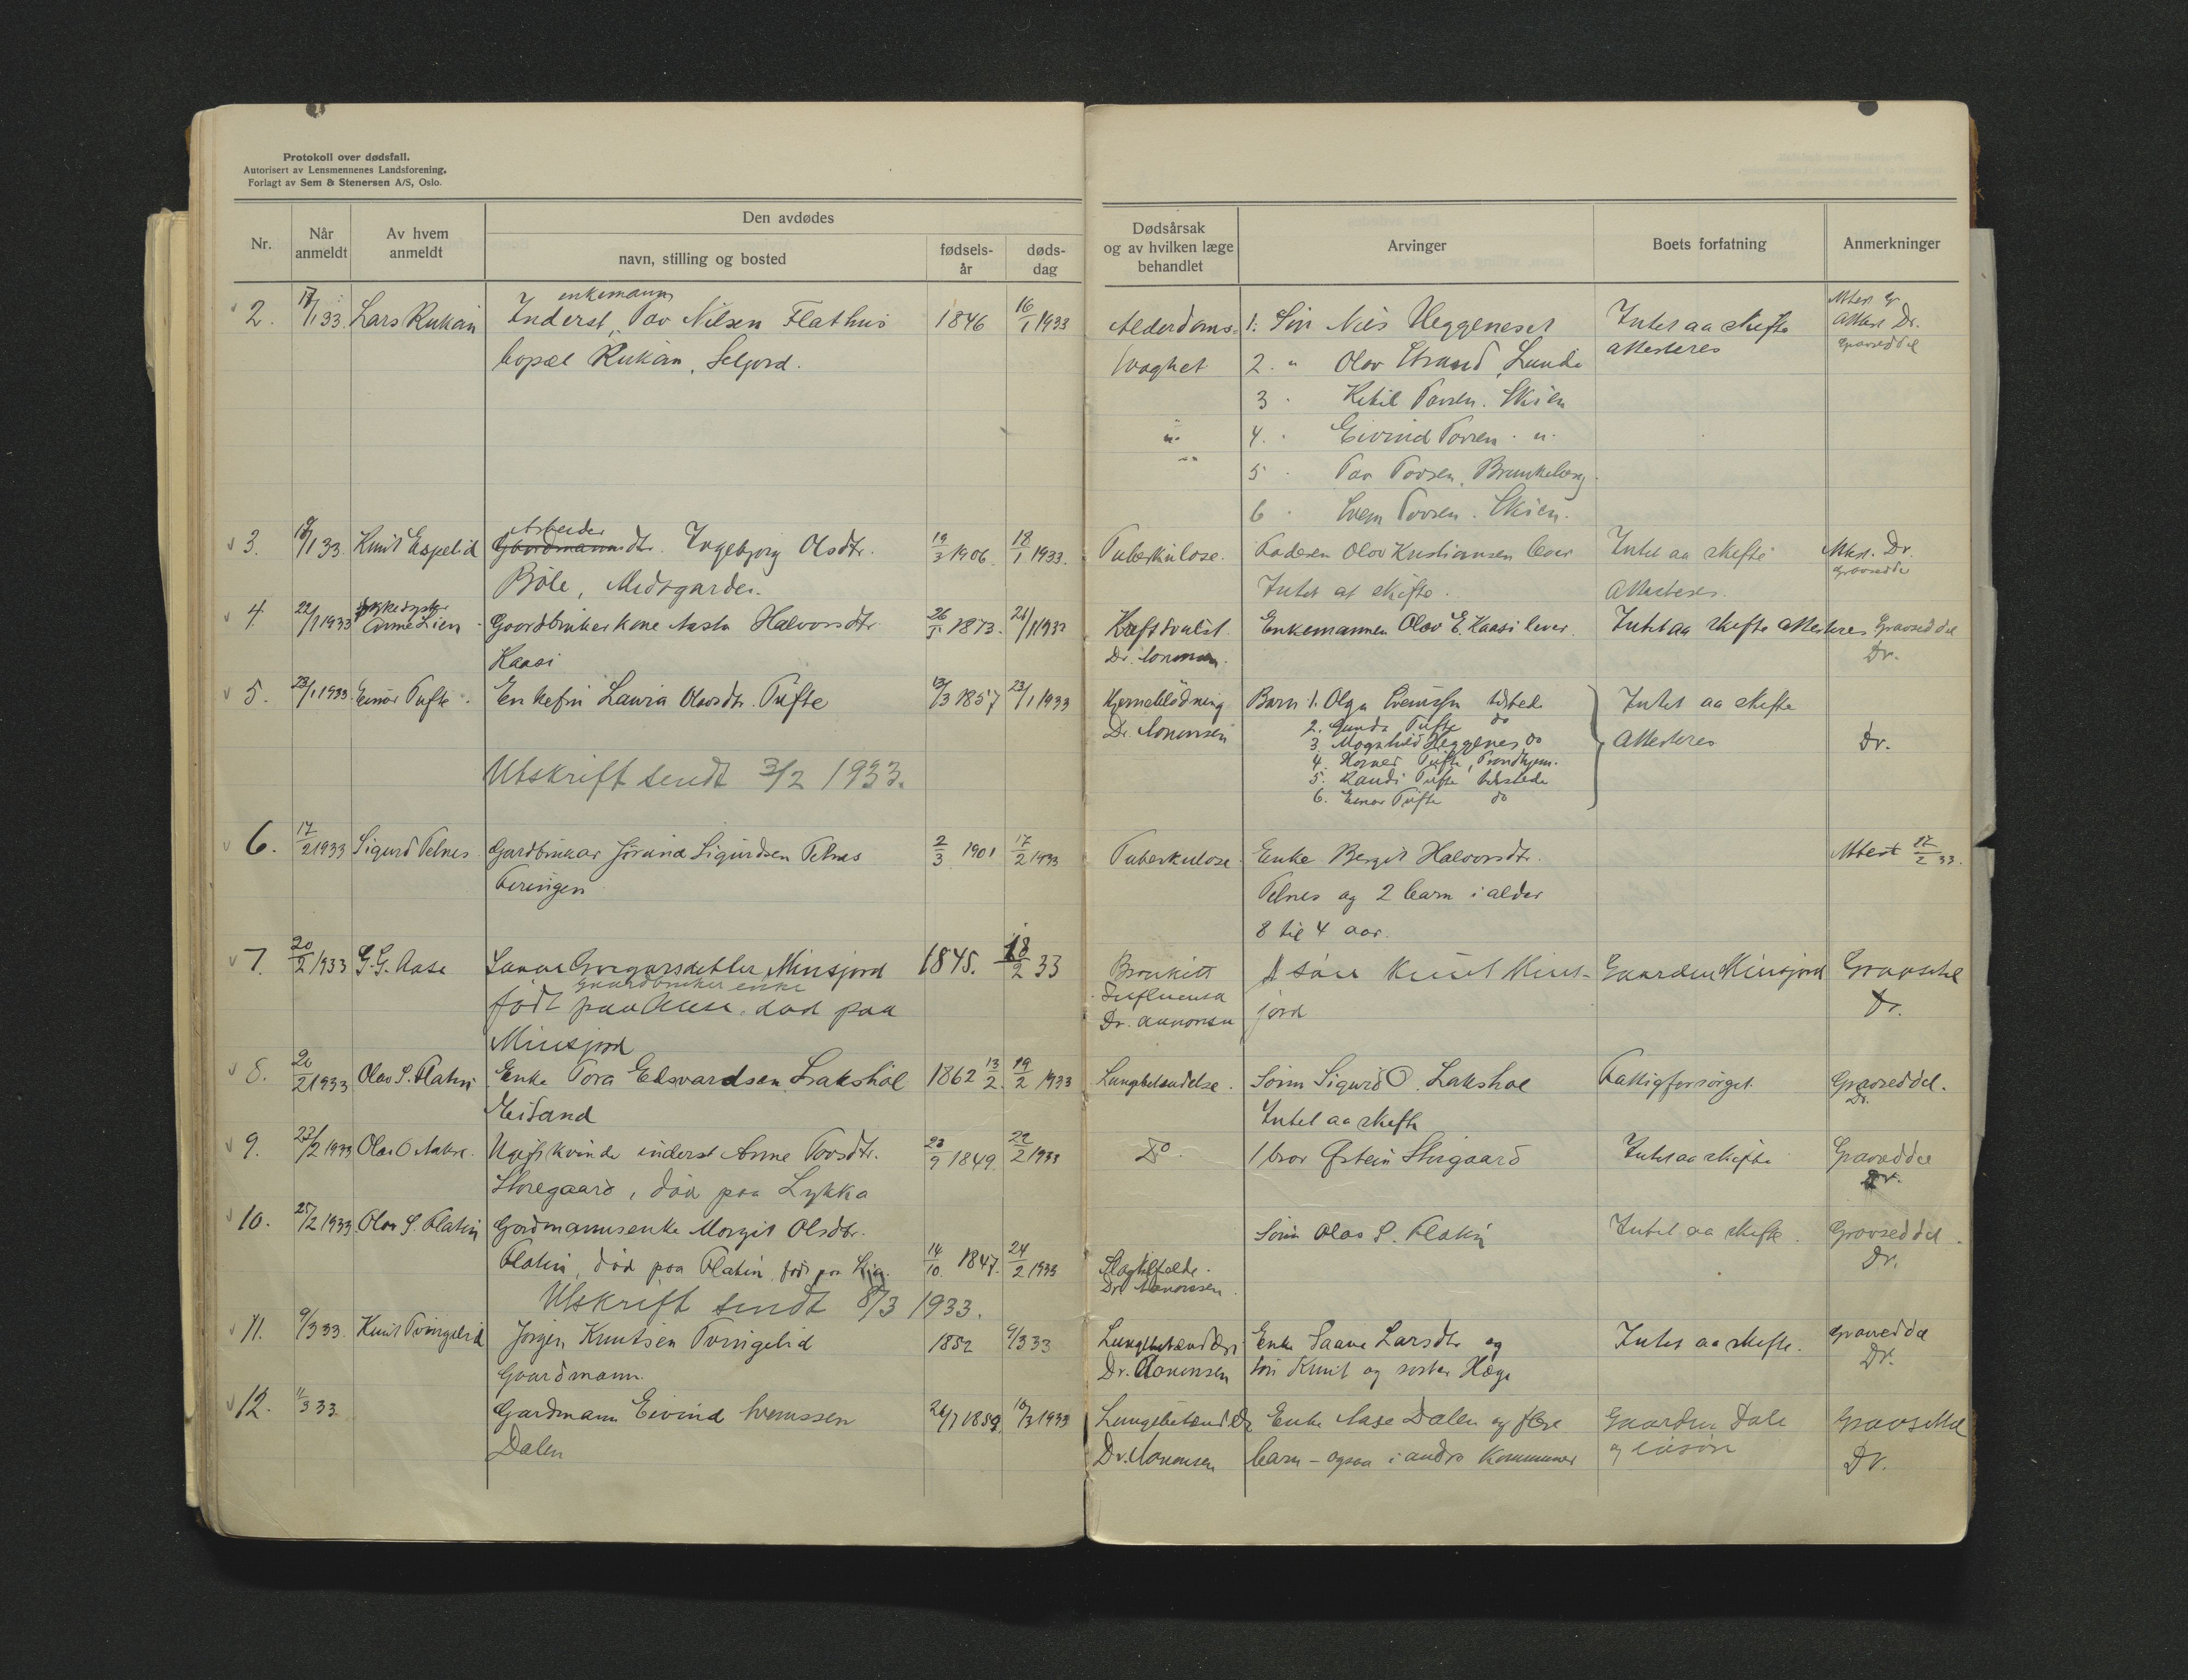 Protokoll over dødsfall.
Autorisert av Lensmennenes Landsforening.
Forlagt av Sem & Stenersen A/S, Oslo.
Nr.
Når anmeldt
Av hvem anmeldt
Den avdødes
navn, stilling og bosted
fødsels-år
døds-dag
Dødsårsak og av hvilken læge behandlet
Arvinger
Boets forfatning
Anmerkninger
2. 17/1 33. Lars Rukan
enkemann
Inderst, Tov Nilsen Flathus 1846 16/1 1933
bopæl Rukan, Seljord.
Alderdoms-
svaghet
1. Søn Nils Heggeneset
2. " Olav Strand, Lunde
3 " Ketil Tovsen. Skien
4. " Eivind Tovsen. "
5 " Tov Tovsen, Brunkeberg.
6 " Svein Tovsen. Skien.
Intet aa skifte
attesteres
Attest Dr.
Gravseddel
3. 18/1 33. Knut Espelid
Arbeider
Gaardmannsdtr. Ingebjørg Olsdtr. 19/3 1906. 18/1 1933.
Bøle, Midtgarden.
Tuberkulose.
Faderen Olav Kristiansen lever
Intet at skifte.
Intet aa skifte
Attesteres.
Attest. Dr.
Gravseddel
4. 22/1 1933 Sykesyster
Anne Lien
Gaardbrukerkone Aasta Halvorsdtr. 26/1 1873. 21/1 1933
Kaasi
Kræftsvulst.
Dr. Aanonsen.
Enkemannen Olav E. Kaasi lever.
Intet aa skifte attesteres Gravseddel
Dr.
5. 23/1 1933. Einar Tufte.
Enkefru Lavra Olavsdtr. Tufte 13/3 1857 23/1 1933
Hjerneblødning
Dr. Aanonsen
Barn 1. Olga Svenssen tilstede
2. Gunda Tufte do
3. Magnhild Heggenes do
4. Tufte, Trondhjem.
5. Randi Tufte tilstede
6. Einar Tufte do
Intet aa skifte
Attesteres
Dr.
Utskrift sendt 3/2 1933.
6. 17/2 1933 Sigurd Telnes
Gardbrukar Jørund Sigurdsen Telnes 2/3 1901 17/2 1933
Tuberkulose.
Enke Bergit Halvorsdtr.
Telnes og 2 barn i alder
8 til 4 aar.
Attest 17/2 33.
7. 20/2 1933 G. G. Aase
Gregarsdatter Minsjord 1845. 18/2 33
Gaardbruker enke
født paa Aase. død paa
Minsjord
Bronkitt
Influensa
Dr. Aanonsen
1 søn Knut Mins-
jord
Gaarden Minsjord
Gravseddel
Dr.
8. 20/2 1933 Olav S. Flatin
Enke Tora Edvardsen Lakshøl 1862 13/2. 19/2 1933
Lungebetendelse.
Sønn Sigurd O. Lakshøl
Intet aa skifte
Fattigforsørget.
Gravseddel.
Dr.
9. 23/2 1933 Olav O Aakre.
Ugift kvinde inderst Anne Tovsdtr. 23/9 1849. 22/2 1933
Storegaard, død paa Lykka
Do.
1 bror Øistein Storgaard
Intet aa skifte
Gravseddel
Dr.
10. 25/2 1933. Olav S. Flatin
Gardmannsenke Margit Olsdtr.
Flatin, død paa Flatin, født paa 14/10 1847. 24/2 1933
Slagtilfelde.
Dr. Aanonsen.
Sønn Olav S. Flatin
Intet aa skifte.
Gravseddel.
Dr.
Utskrift sendt 8/3 1933.
11. 9/3 33. Knut Tvingelid
Jørgen Knutsen Tvingelid 1852 9/3 33
Gaardmann.
Lungebetendelse
Dr. Aanonsen
Enke Saave Larsdtr og
søn Knut og søster Hæge
Intet aa skifte.
Gravseddel
Dr.
12. 11/3 33.
Gardmann Eivind Svenssen 26/7 1859. 10/3 1933
Dalen
Lungebetendelse
Dr. Aanonsen
Enke Aase Dalen og flere
barn - ogsaa i andre kommuner
Gaarden Dale
og løsøre
Gravseddel
Dr.